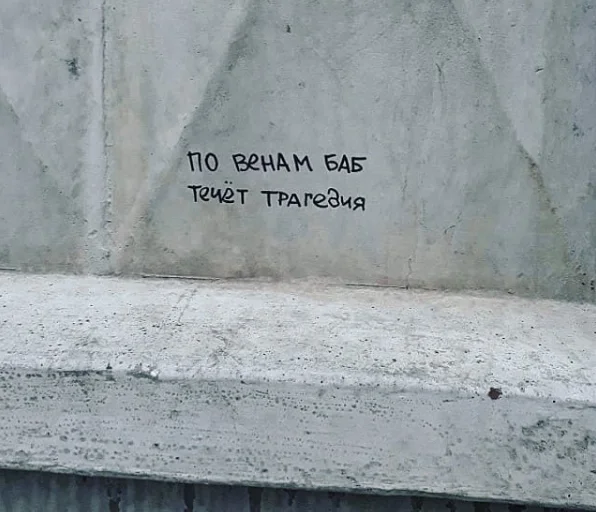 ПО ВЕНАМ БАБ
течёт ТРАгедия